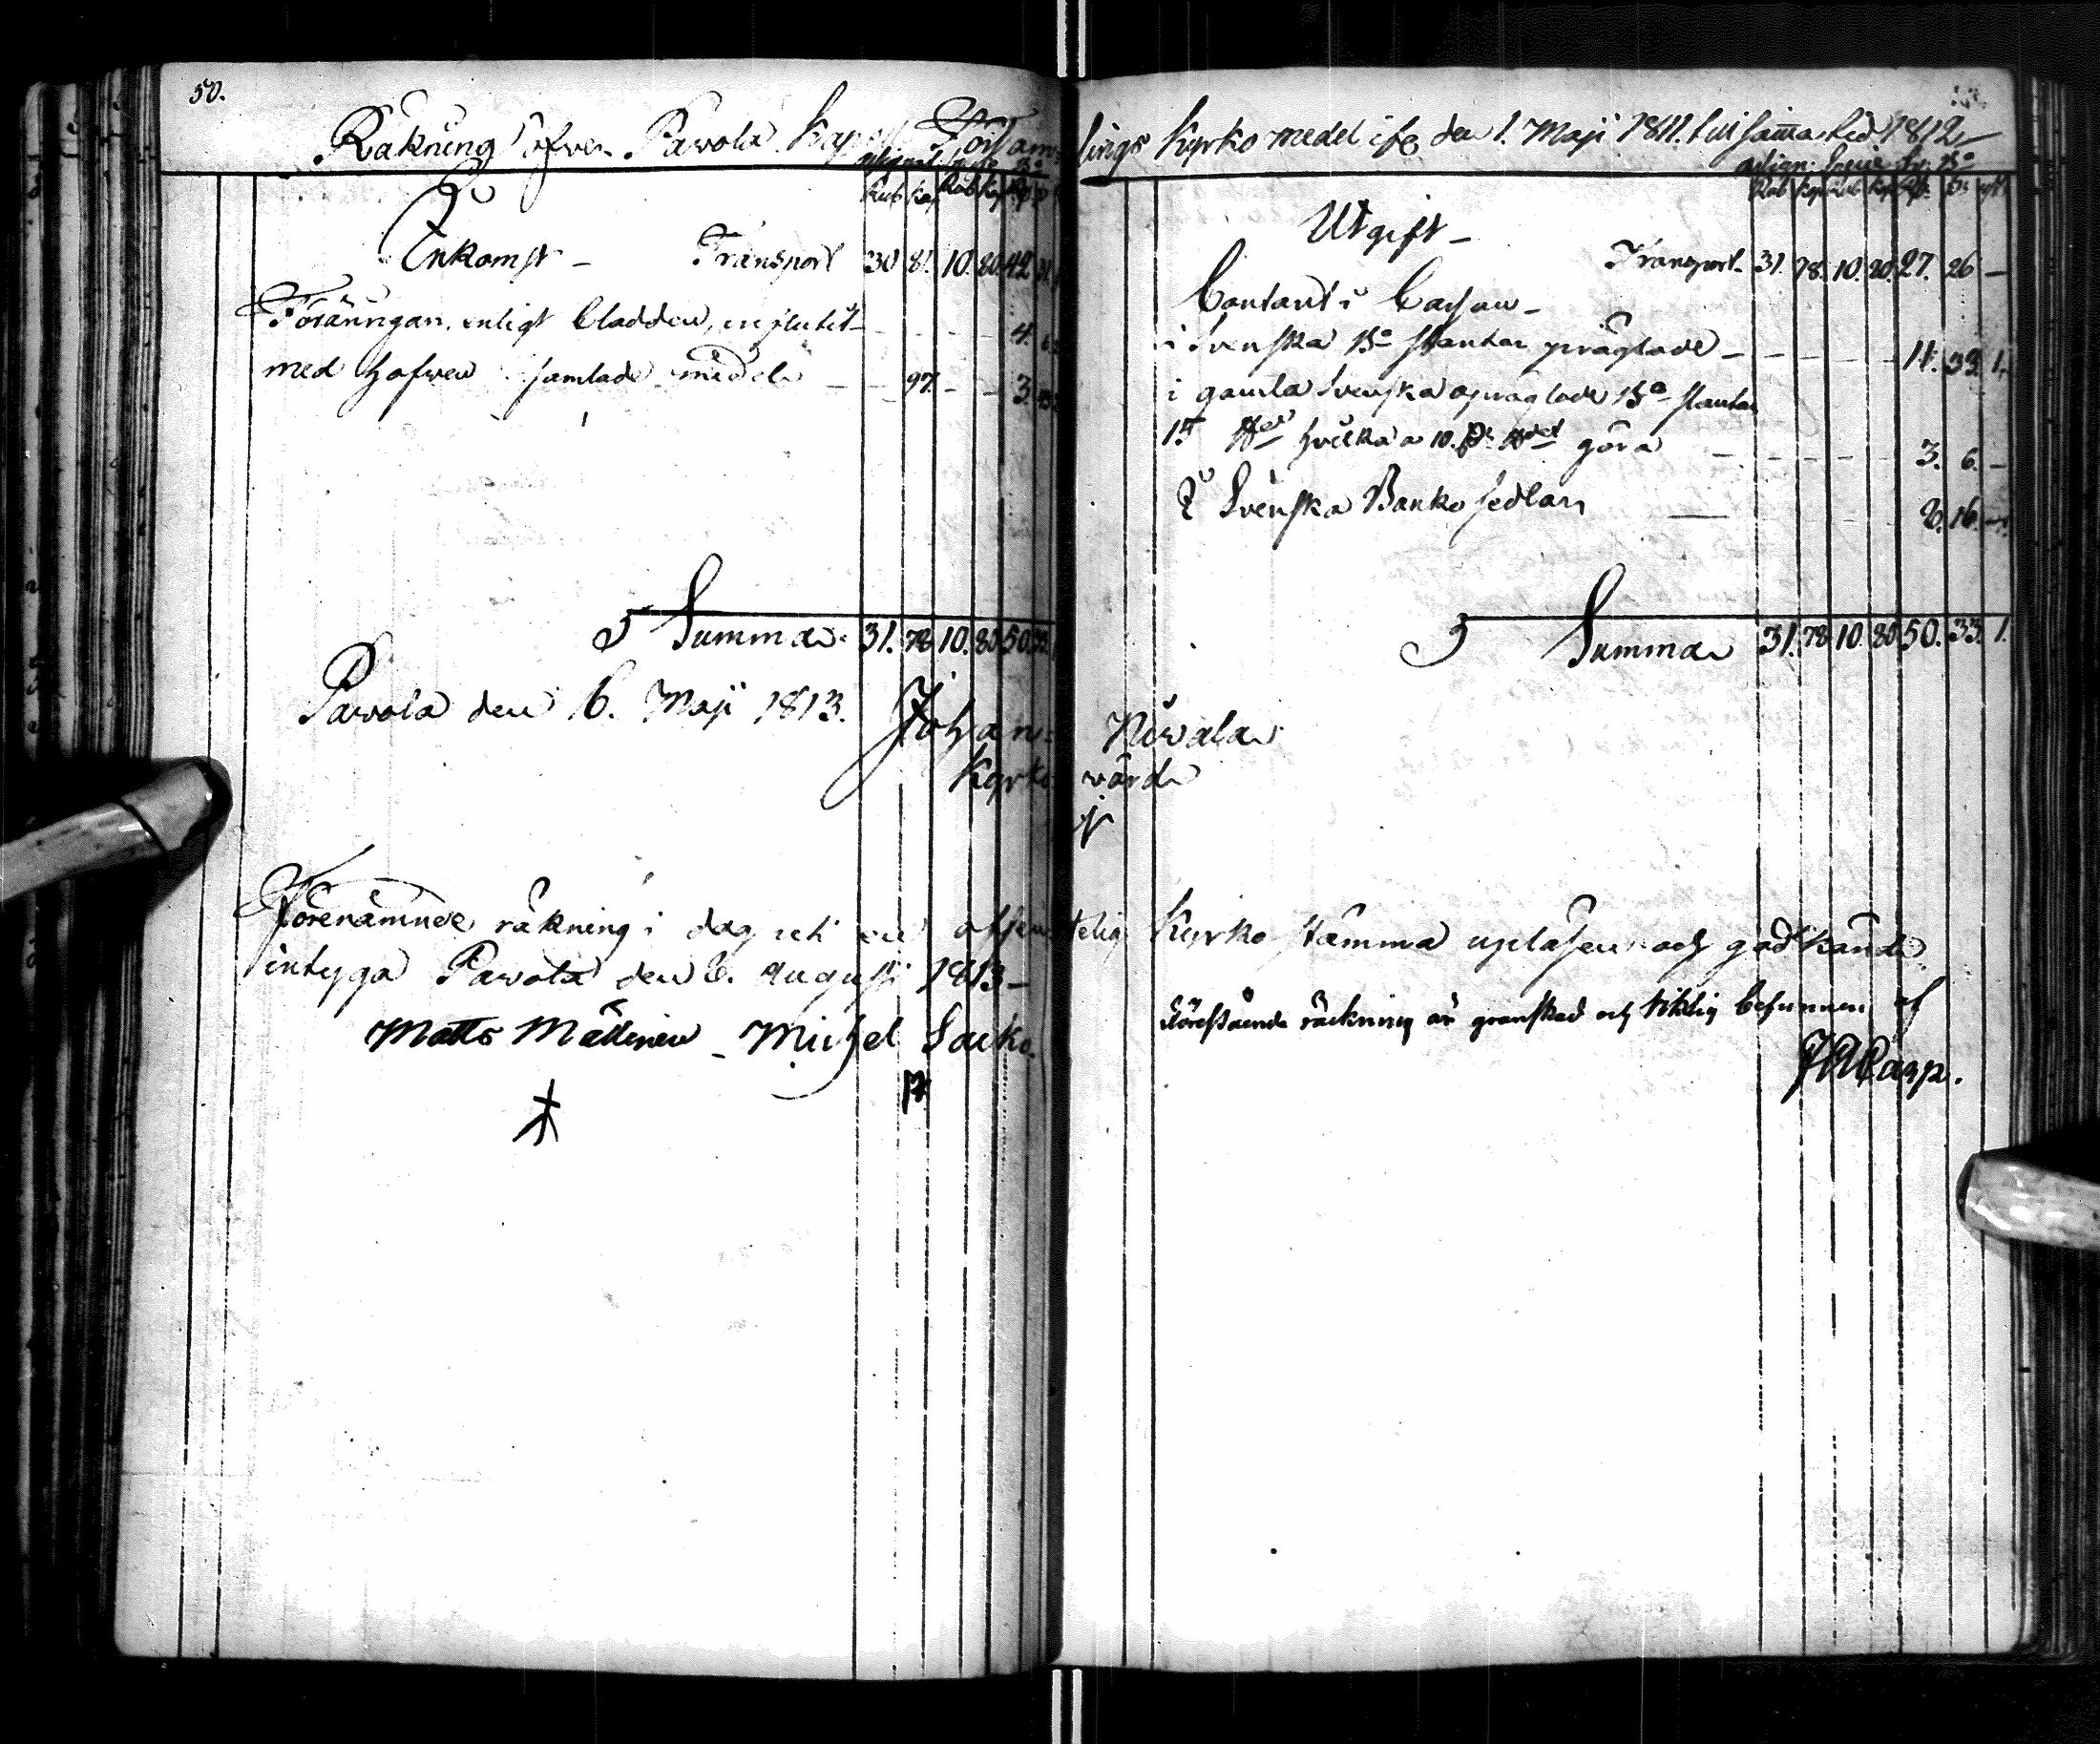 50.
Räkning öfver Pavola Kapell Församlings Kyrko medel ifr. den 1. Maji 1811. till samma tid 1812
Inkomst - Transport 30 81. 10. 80 42
Föräringar, enligt Cladden, influtit - - - - 4.
med Håfwen samlade medel - - 97. - - 3.
Summa 31. 78 10. 80 50. 33.
Pavola den 6. Maji 1813.
Johan Niwala
Kyrkowärd
Förenämnde räkning i dag uti en offentelig Kyrko stämma upläsen och godkänd
intyga Pavola den 6. Augusti 1813 -
Matts Mattinen - Michel Lacko
Assign: Specie Sv: Bo
Rub Kop Rub Kop
Utgift -
Transport - 31. 78. 10. 80. 27. 26 -
Contant i Cassan -
i Svenska Bo slantar präglade - - - - - 14. 32. 1.
i gamla Svenska opräglade Bo slantar
hvilka a 10. göra - - - - - 3. 6. -
i Svenska Banko sedlar - - - - 2. 16. -
Summa 31. 78 10. 80 50. 33. 1.
Förestående räckning är granskad och riktig befunnen af